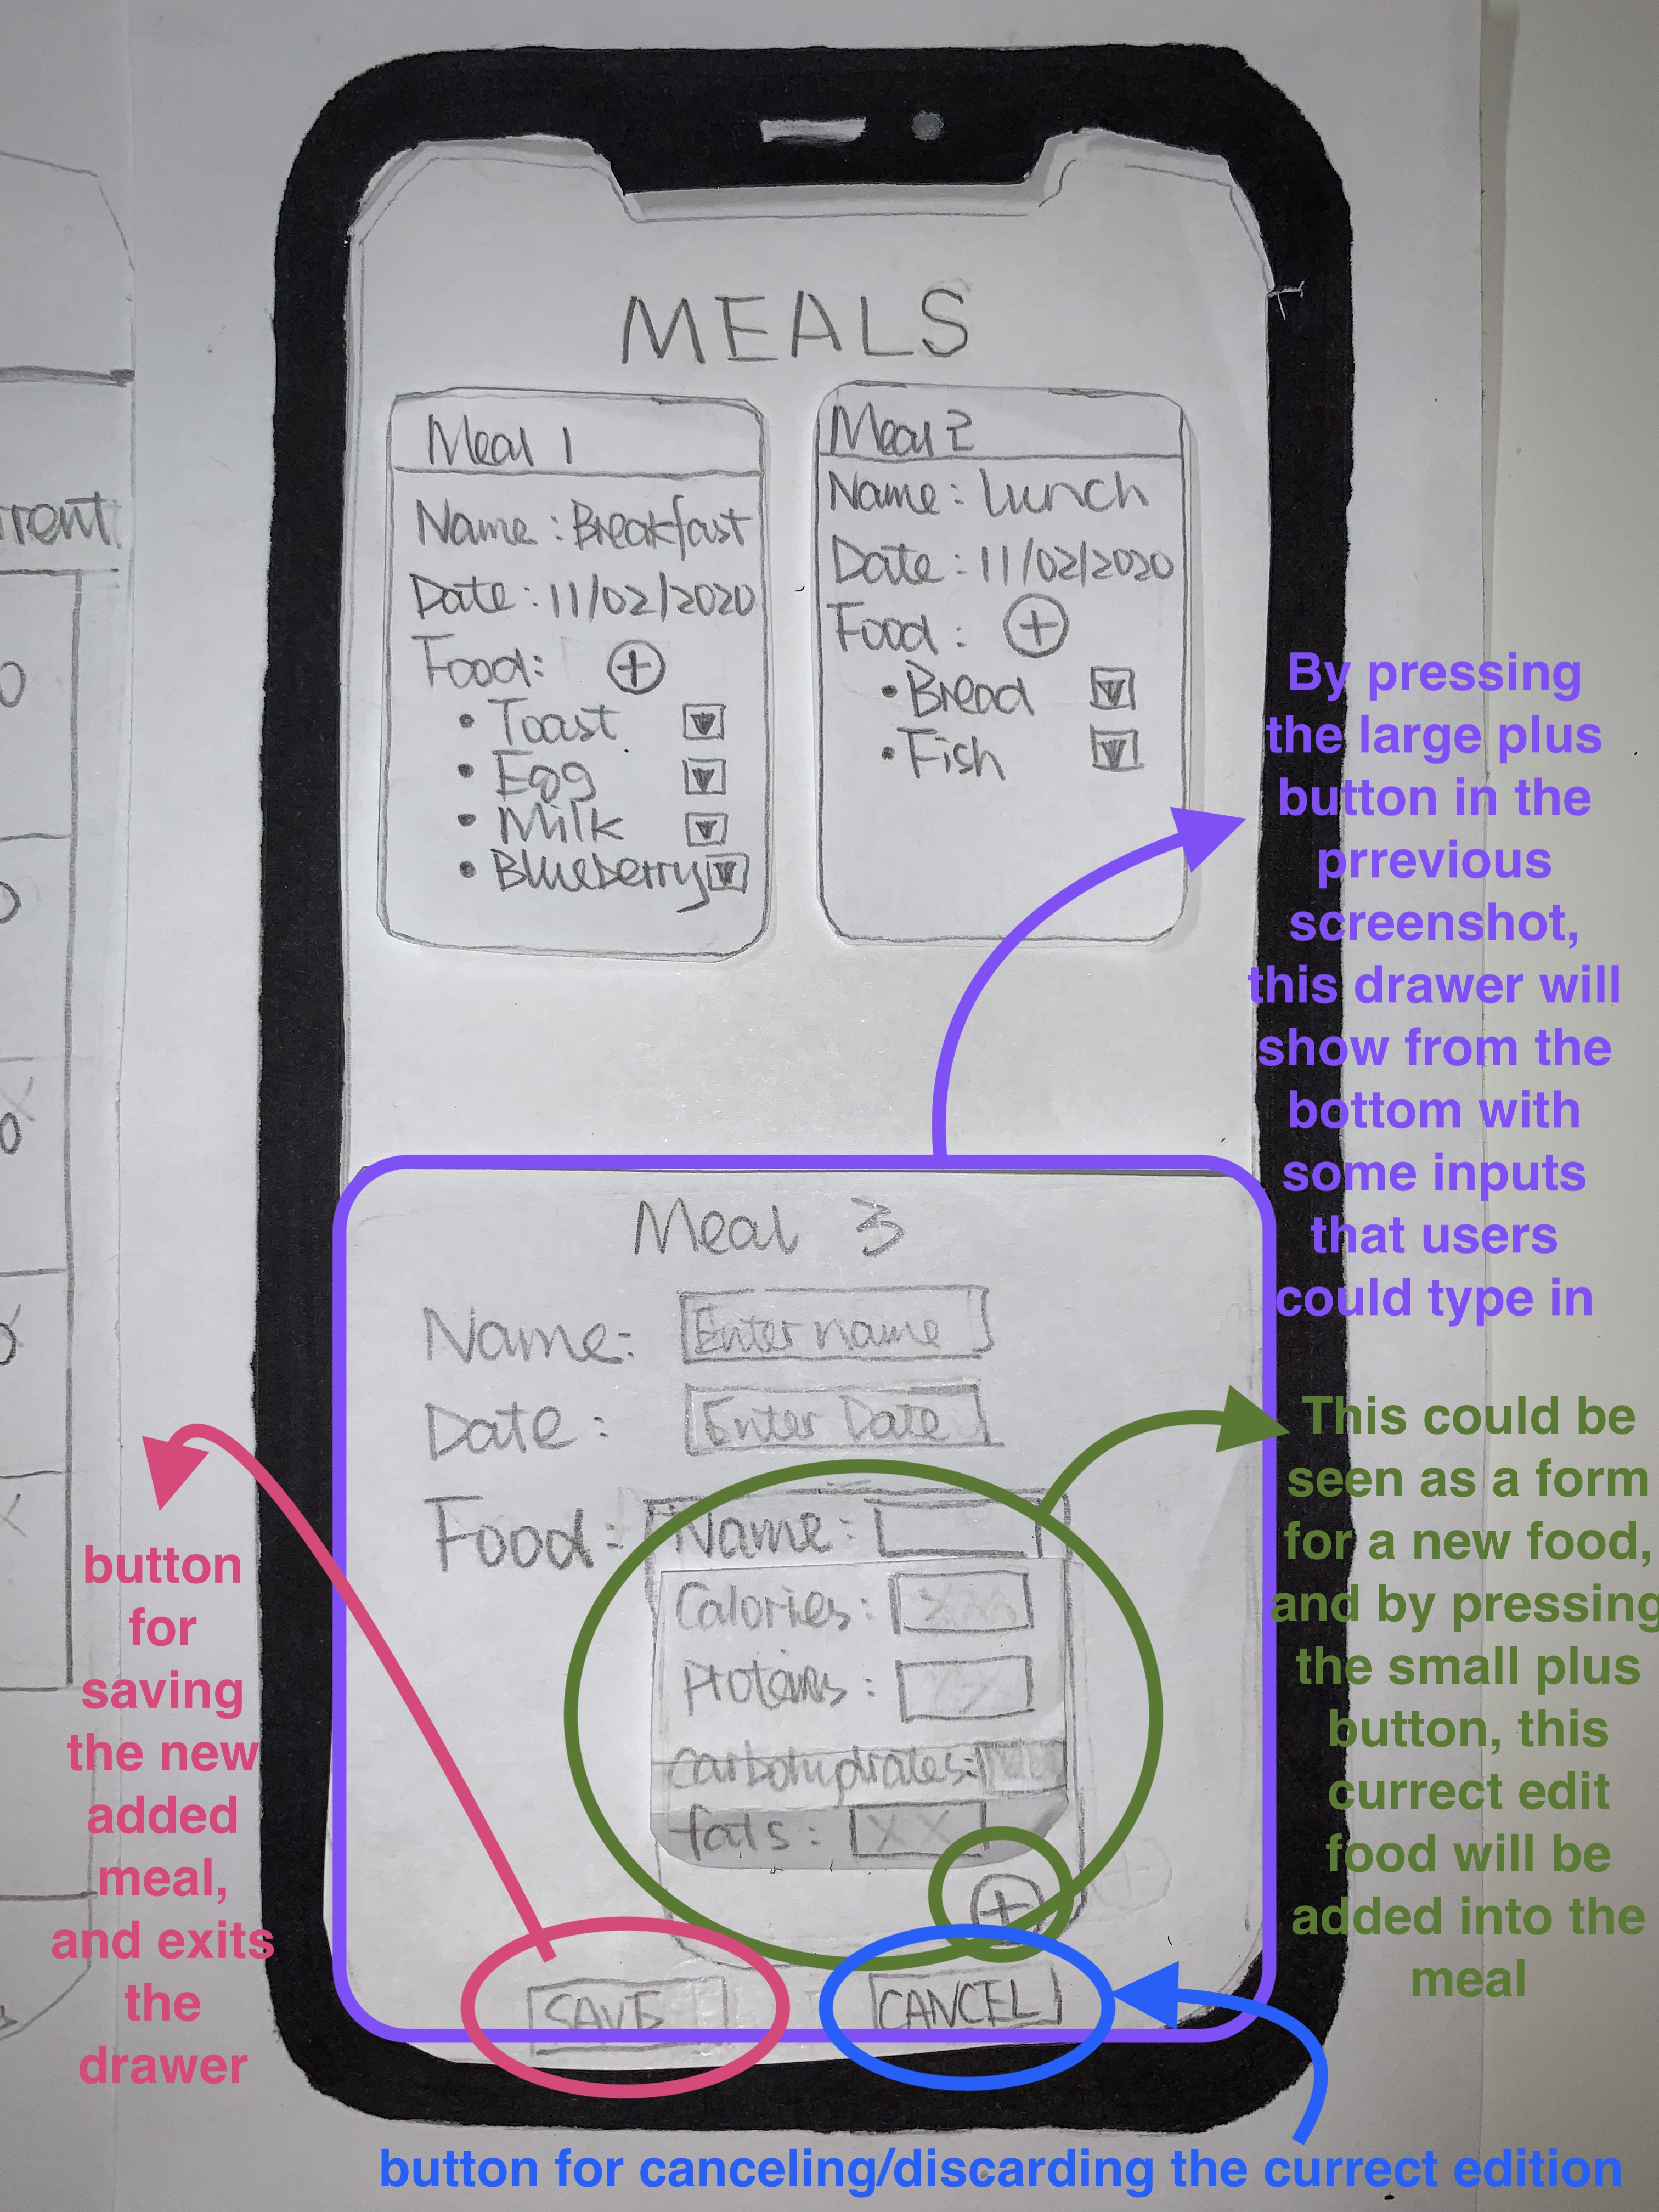 MEALS
Meal 1
Name : Breakfast
Date : 11/02/2020
Food: +
• Toast
• Egg
• Milk
• Blueberry
Meal 2
Name : Lunch
Date : 11/02/2020
Food : +
• Bread
• Fish
rrent
By pressing
the large plus
button in the
prrevious
screenshot,
this drawer will
show from the
bottom with
some inputs
that users
could type in
Meal 3
Name: Enter name
Date : Enter Date
Food: Name:
Calories:
Proteins :
Carbohydrates:
fats : XX
+
SAVE
CANCEL
This could be
seen as a form
for a new food,
and by pressing
the small plus
button, this
currect edit
food will be
added into the
meal
button
for
saving
the new
added
meal,
and exits
the
drawer
button for canceling/discarding the currect edition